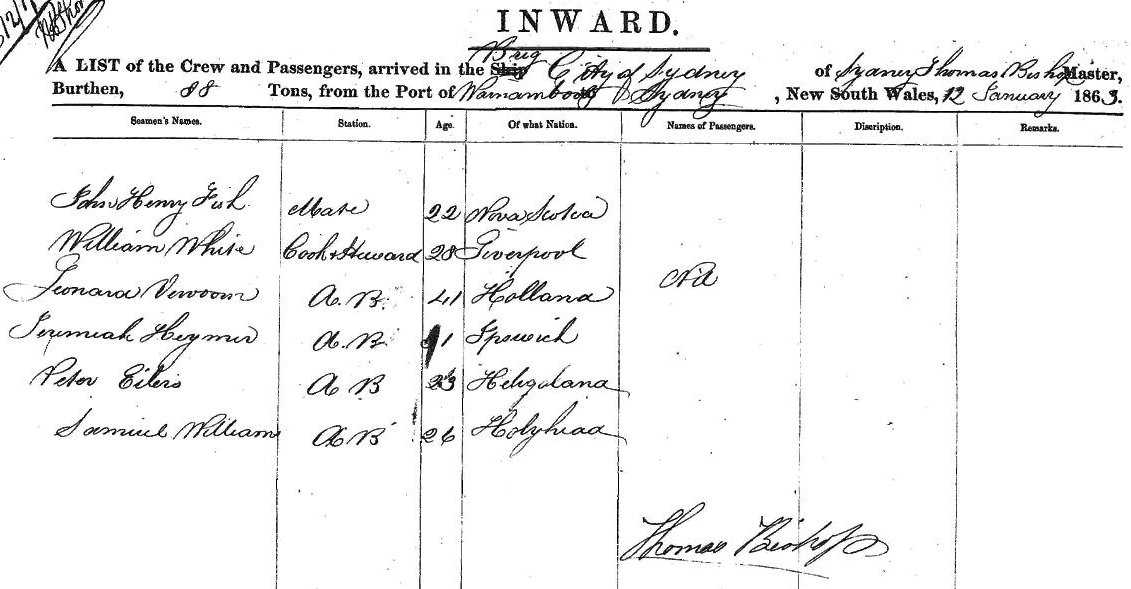 INWARD.
Brig
A LIST of the Crew and Passengers, arrived in the Ship City of Sydney of Sydney Thomas Bishop Master,
Burthen, 88 Tons, from the Port of Warnambool to Sydney, New South Wales, 12 January 1863.
Seamen's Names. Station. Age. Of what Nation. Names of Passengers. Discription. Remarks.
John Henry Fish Mate 22 Nova Scotia
William White Cook & Steward 28 Liverpool
Nil
Leonard Verwoorn A.B. 41 Holland
Jeremiah Heymer A.B. Ipswich
Peter Eilers A B 23 Heligoland
Samuel Williams A B 26 Holyhead
Thomas Bishop